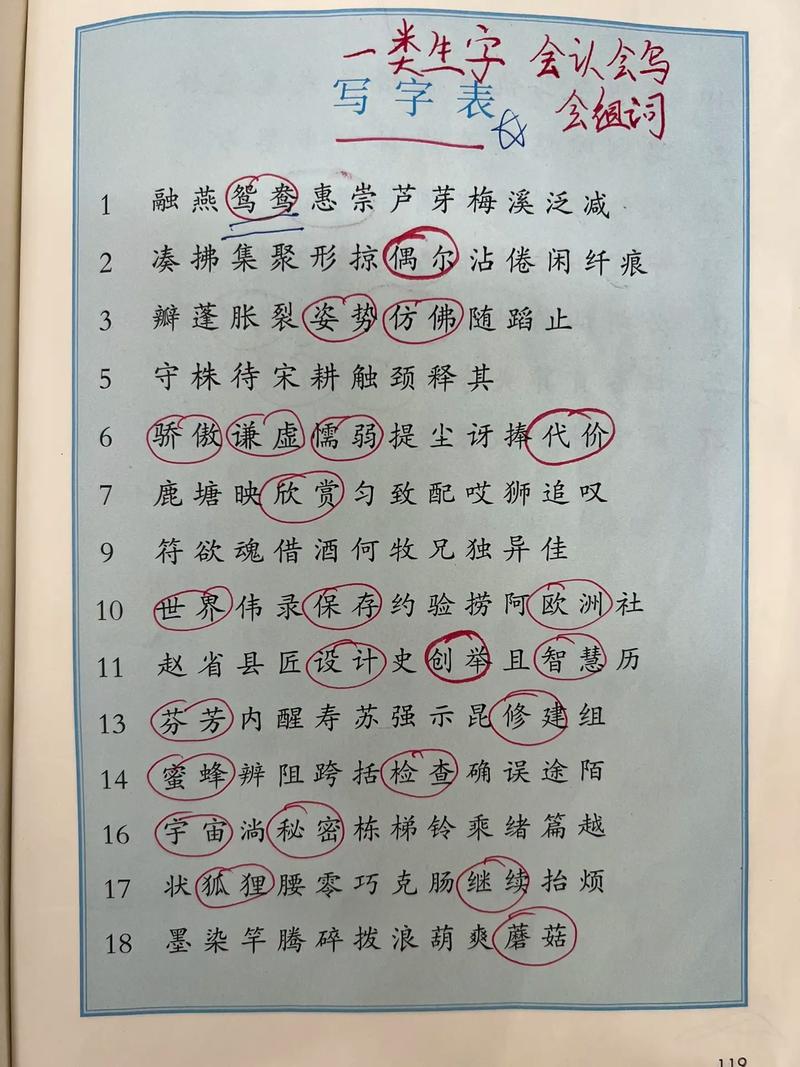 一类生字 会认会写
写字表 会组词
1 融燕鸳鸯惠崇芦芽梅溪泛减
2 凑拂集聚形掠偶尔沾倦闲纤痕
3 瓣蓬胀裂姿势仿佛随蹈止
5 守株待宋耕触颈释其
6 骄傲谦虚懦弱提尘讶捧代价
7 鹿塘映欣赏匀致配哎狮追叹
9 符欲魂借酒何牧兄独异佳
10 世界伟录保存约验捞阿欧洲社
11 赵省县匠设计史创举且智慧历
13 芬芳内醒寿苏强示昆修建组
14 蜜蜂辨阻跨括检查确误途陌
16 宇宙淌秘密栋梯铃乘绪篇越
17 状狐狸腰零巧克肠继续抬烦
18 墨染竿腾碎拨浪葫爽蘑菇
119